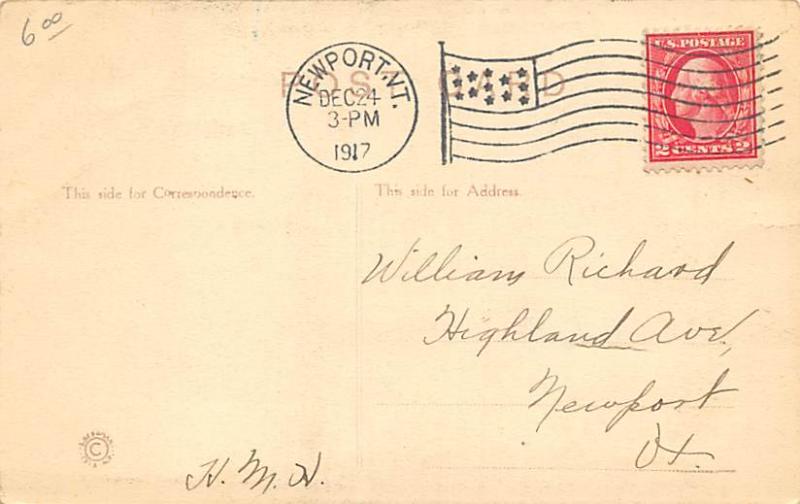 6 00
POST CARD
NEWPORT, VT.
DEC 24
3-PM
1917
U.S. POSTAGE
2 CENTS 2
This side for Correspondence.
This side for Address.
William Richard
Highland Ave,
Newport
Vt.
C
H. M. H.